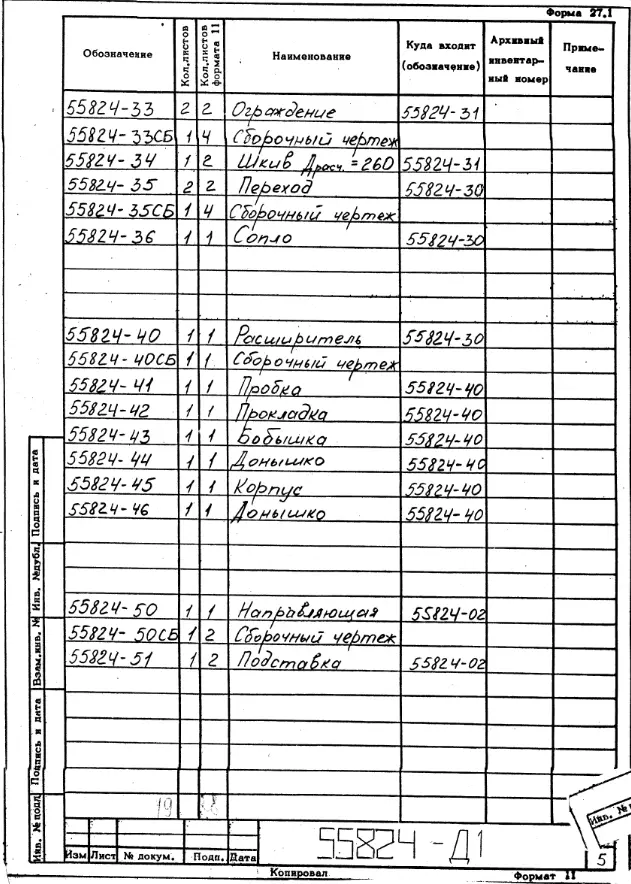 Форма 27.1
Обозначение Кол.листов Кол.листов формата 11 Наименование Куда входит (обозначение) Архивный инвентар-ный номер Приме-чание
55824-33 2 2 Ограждение 55824-31
55824-33СБ 1 4 Сборочный чертеж
55824-34 1 2 Шкив Dрасч.=260 55824-31
55824-35 2 2 Переход 55824-30
55824-35СБ 1 4 Сборочный чертеж
55824-36 1 1 Сопло 55824-30
55824-40 1 1 Расширитель 55824-30
55824-40СБ 1 1 Сборочный чертеж
55824-41 1 1 Пробка 55824-40
55824-42 1 1 Прокладка 55824-40
55824-43 1 1 Бобышка 55824-40
55824-44 1 1 Донышко 55824-40
55824-45 1 1 Корпус 55824-40
55824-46 1 1 Донышко 55824-40
55824-50 1 1 Направляющая 55824-02
55824-50СБ 1 2 Сборочный чертеж
55824-51 1 2 Подставка 55824-02
Подпись и дата
Инв. №дубл.
Взам.инв. №
Подпись и дата
Инв. № подл
19
55824-Д1
Инв. №
5
Изм Лист № докум. Подп. Дата
Копировал Формат 11